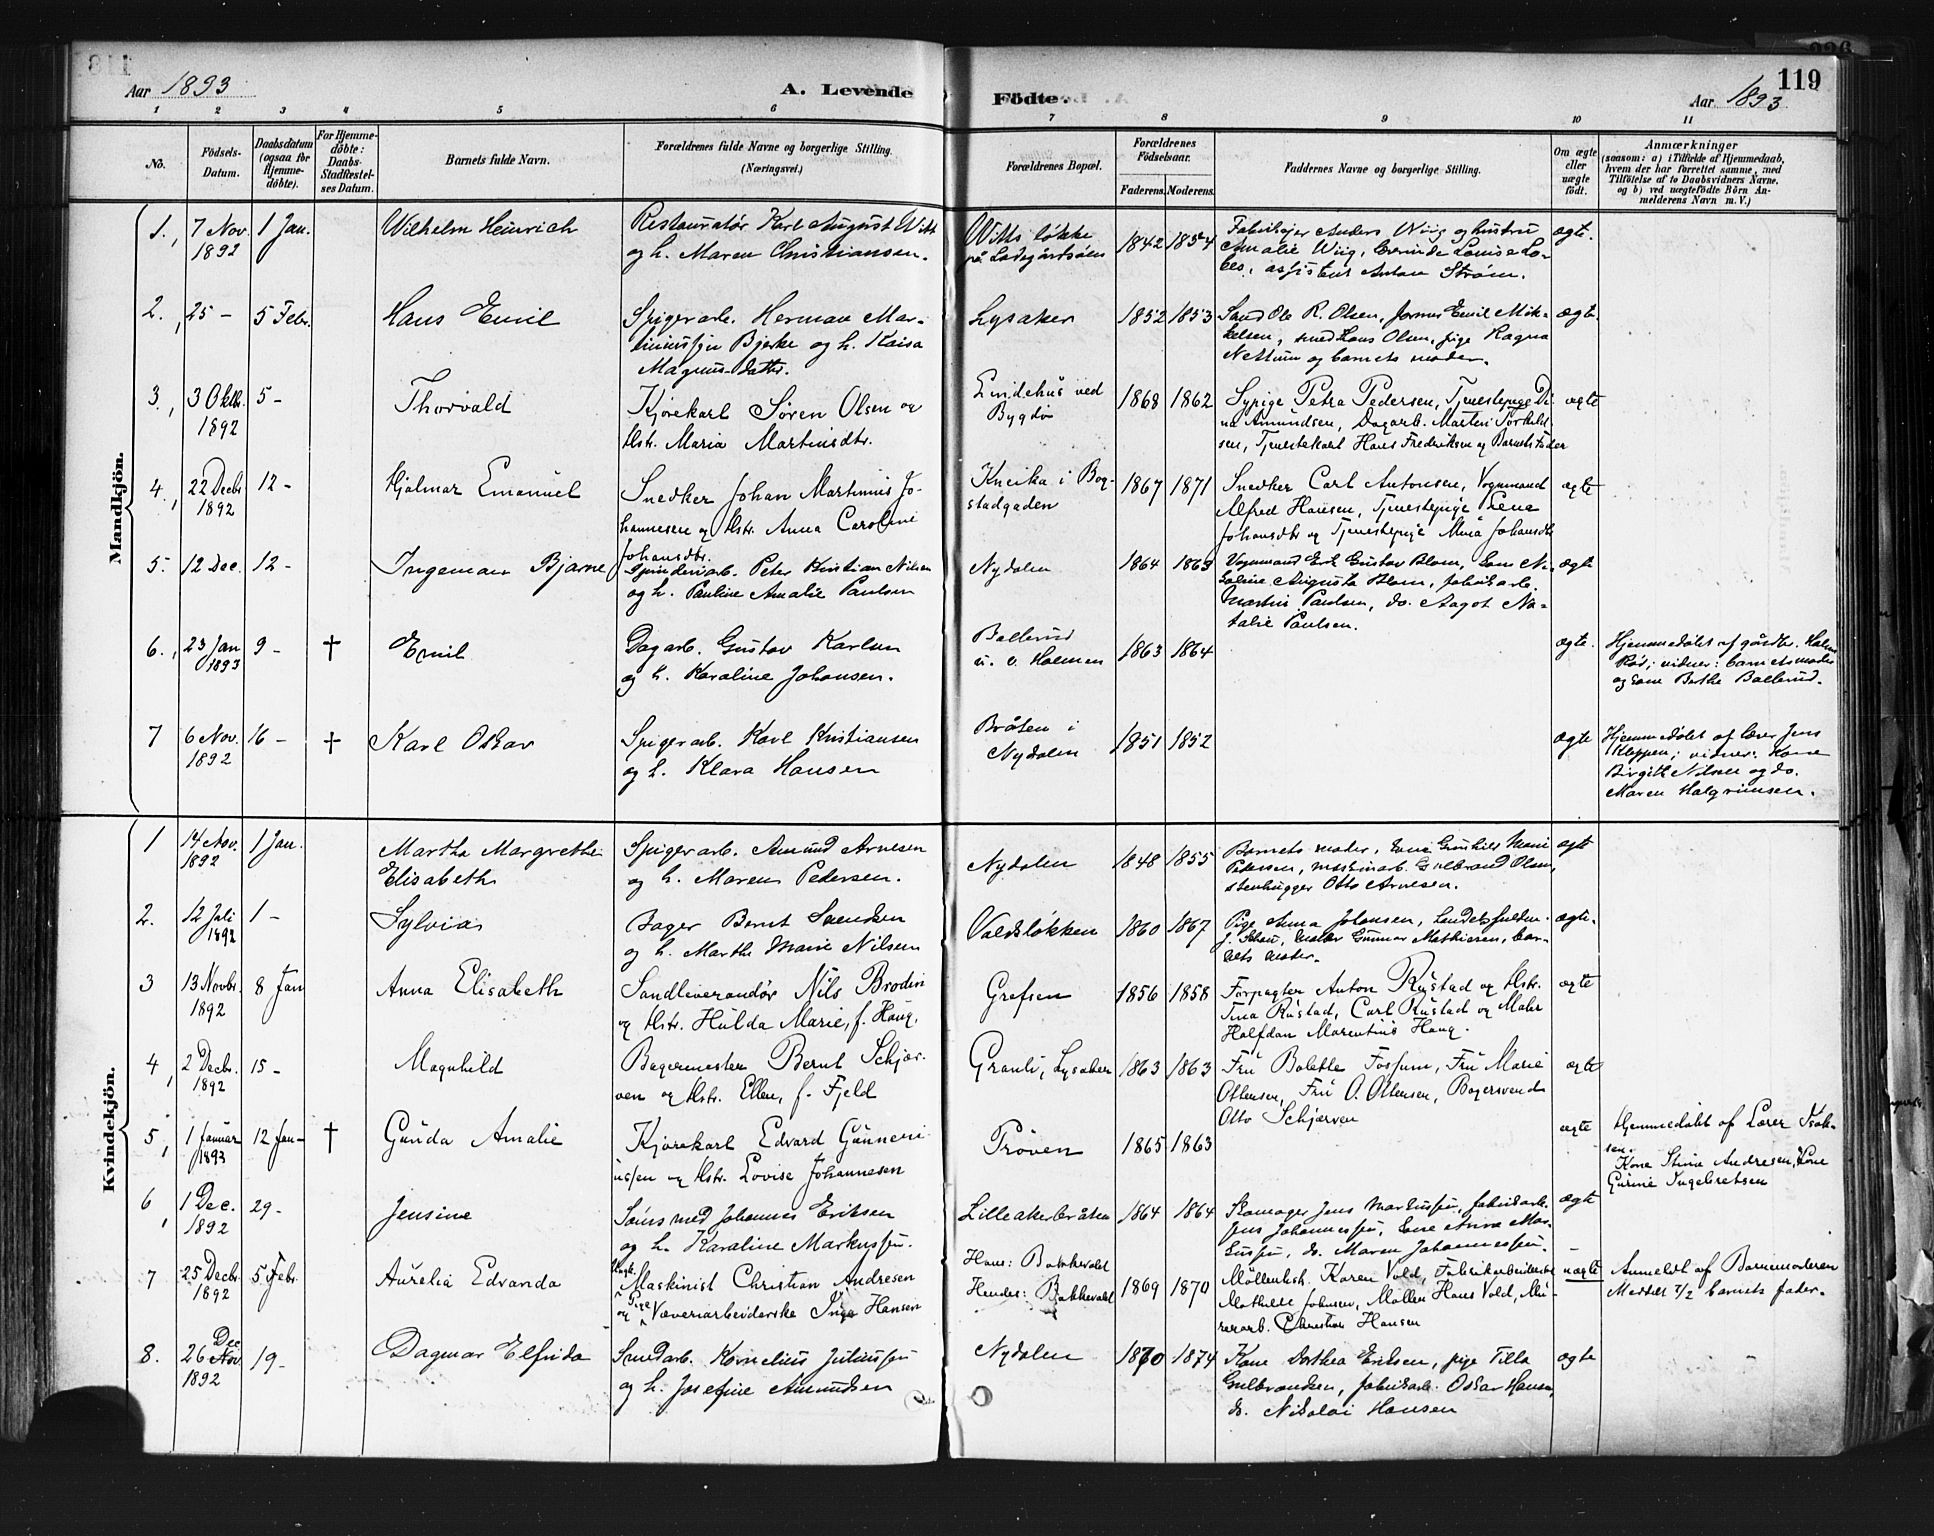 119
Aar 1893 A. Levende Födte. Aar 1893
1 2 3 4 5 6 7 8 9 10 11
No. Födsels-Datum. Daabsdatum (ogsaa for Hjemme-döbte). For Hjemme-döbte: Daabs-Stadfæstel-ses Datum. Barnets fulde Navn. Forældrenes fulde Navne og borgerlige Stilling. (Næringsvei.) Forældrenes Bopæl. Forældrenes Födselsaar. Faderens. Moderens. Faddernes Navne og borgerlige Stilling. Om ægte eller uægte födt. Anmærkninger (saasom: a) i Tilfælde af Hjemmedaab, hvem der har forrettet samme, med Tilföielse af to Daabsvidners Navne, og b) ved uægtefödte Börn An-melderens Navn m. V.)
Mandkjön.
1. 7 Nov. 1 Jan. Wilhelm Heinrich Restauratør Karl August Witt Witts løkke 1842 1854 Fabrikejer Anders Wiig og hustru ægte.
1892 og h. Maren Christiansen. på Ladegårdsøen Amalie Wiig, Louise
assistent Anton Strøm.
2. 25 - 5 Febr. Hans Emil Spigerarb. Herman Mar- Lysaker 1852 1853 Ole R. Olsen, Emil Mik- ægte.
tiniussen Bjerke og h. Kaisa kelsen, smed Hans Olsen, pige Ragna
Magnus-datter. Nettum og barnets moder.
3. 3 Oktbr. 5 - Thorvald Kjørekarl Søren Olsen og Lindehus ved 1868 1862 Sypige Petra Pedersen, Tjenestepige Di- ægte
1892 Hstr. Maria Martinsdtr. Bygdø na Amundsen, Dagarb. Martin Torkild-
sen, Tjenestekarl Hans Frederiksen og Barnets Fader
4. 22 Decbr 12 - Hjalmar Emanuel Snedker Johan Martinius Jo- Kneika i Bog- 1867 1871 Snedker Carl Antonsen, Vognmand ægte
1892 hannesen og Hstr. Anna Caroline stadgaden Alfred Hansen, Tjenestepige Lena
Johansdtr. Johansdtr og Tjenestepige Mina Johansdtr
5. 12 Dec. 12 - Ingeman Bjarne Spinderiarb. Peter Kristian Nilsen Nydalen 1864 1863 Vognmand Gustav Blom, ægte
og h. Pauline Amalie Paulsen Augusta Blom, fabrikarb.
Martin Paulsen, do. Aagot Na-
talie Paulsen.
6. 23 Jan 9 - † Emil Dagarb. Gustav Karlsen Ballerud 1863 1864 ægte. Hjemmedøbt af gårdbr.
1893 og h. Karoline Johansen. u. v. Holmen vidner: barnets moder
og kone Berthe Ballerud.
7 6 Nov. 16 - † Karl Oskar Spigerarb. Karl Kristiansen Bråten i 1851 1852 ægte Hjemmedøbt af lærer Jens
1892 og h. Klara Hansen Nydalen Kleppen; vidner: Kone
Birgitte Nilsen og do.
Maren Halgrimsen.
Kvindekjön.
1 14 Nov. 1 Jan. Martha Margrethe Spigerarb. Amund Arnesen Nydalen 1848 1855 Barnets moder, kone Gunhild Marie ægte
1892 Elisabeth og h. Maren Pedersen. Pedersen, maskinarb. Gulbrand Olsen,
stenhugger Otto Arnesen.
2. 12 Juli 1 - Sylvia Bager Bernt Svendsen Valdsløkken 1860 1867 Pige Anna Johansen, ægte.
1892 og h. Marthe Marie Nilsen maler Gunnar Mathiesen, bar-
nets moder.
3 13 Novbr. 8 Jan Anna Elisabeth Sandleverandør Nils Brodin Grefsen 1856 1858 Forpagter Anton Rustad og Hstr. ægte
1892 og Hstr. Hulda Marie, f. Haug. Tina Rustad, Carl Rustad og Maler
Halfdan Marentius Haug.
4, 2 Decbr. 15 - Magnhild Bagermester Bernt Schjær- Granli, Lysaker 1863 1863 Fru Bolette Fossum, Fru Marie ægte
1892 ven og Hstr. Ellen, f. Fjeld Ottensen, Fru O. Ottensen, Bagersvend
Otto Schjærven
5, 1 Januar 12 Jan- † Gunda Amalie Kjørekarl Edvard Gunneri- Prøven 1865 1863 ægte Hjemmedøbt af Lærer Isak-
1893 ussen og Hstr. Lovise Johannesen sen.
Kone Stina Andresen, Kone
Gurine Ingebretsen
6, 1 Dec. 29 - Jensine Johannes Eriksen Lilleakerbråten 1864 1864 Skomager Jens Markussen, fabrikarb. ægte
1892 og h. Karoline Markussen. Jens Johannessen, kone Anna Mar-
kussen, do. Maren Johannessen.
7 25 Decbr 5 Febr. Aurelia Edvarda Ungk. Maskinist Christian Andresen Hans: Bakkevold 1869 1870 Møllerbest. Karen Vold, Fabrikarbeiderske uægte Anmeldt af Barnemoderen
1892 og Pige Væveriarbeiderske Inga Hansen Hendes: Bakkevold Mathilde Johnsen, Møller Hans Vold, Mu- Meddelt 7/2 barnets fader.
rerarb. Christian Hansen
8. 26 Dec Nov. 19 - Dagmar Elfrida Smedarb. Kornelius Juliussen Nydalen 1870 1874 Kone Dorthea Eriksen, pige Tilla ægte
1892 og h. Josefine Amundsen Gulbrandsen, fabrikarb. Oskar Hansen,
do. Nikolai Hansen